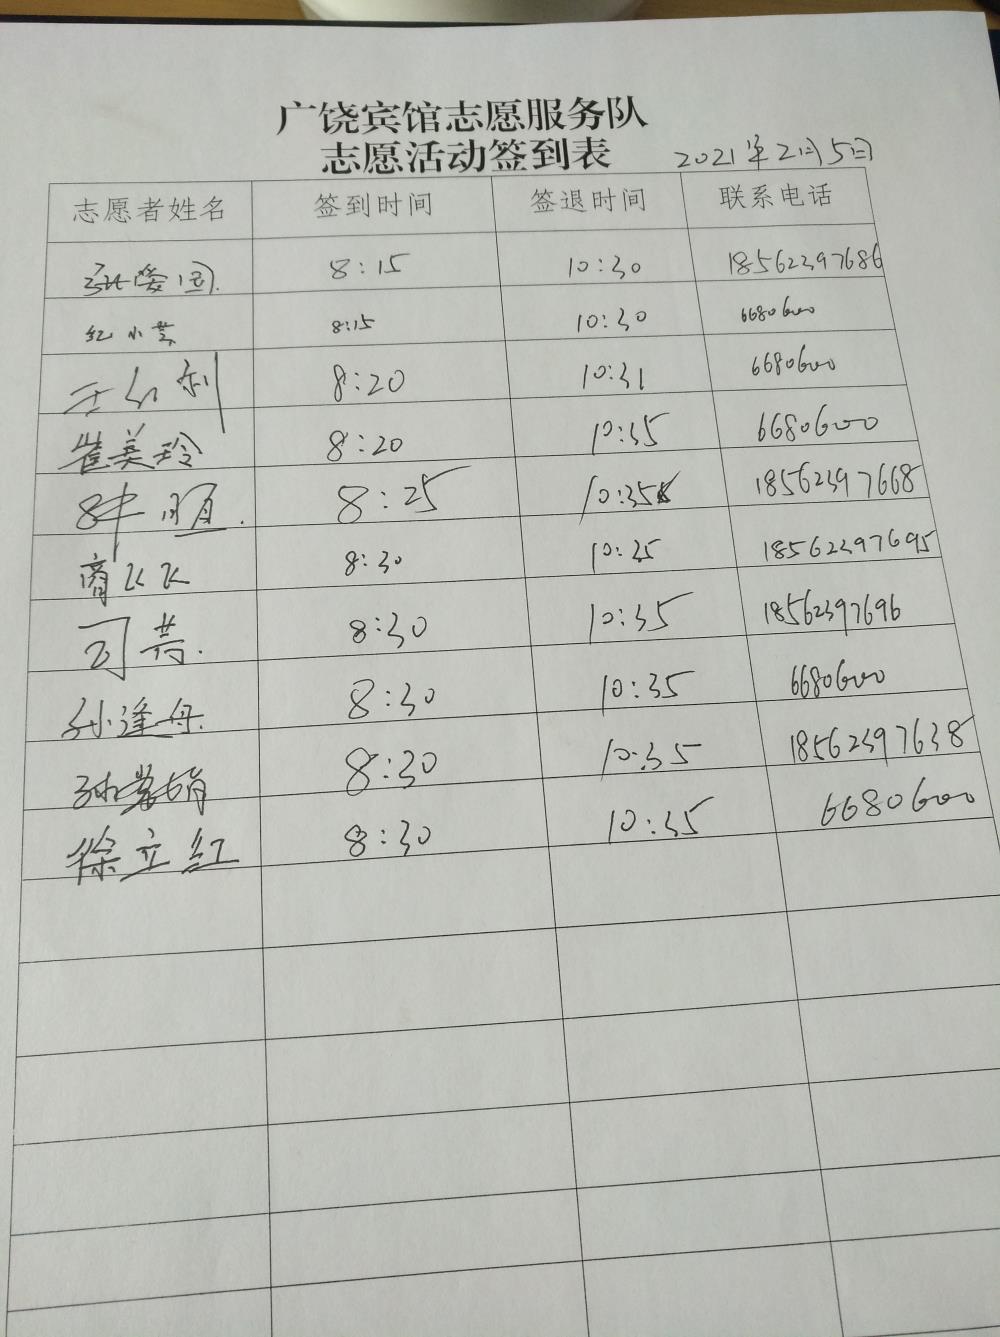 广饶宾馆志愿服务队
志愿活动签到表 2021年2月5日
志愿者姓名 签到时间 签退时间 联系电话
8:15 10:30 18562397686
纪小芸 8:15 10:30 6680600
8:20 10:31 6680600
崔美玲 8:20 10:35 6680600
8:25 10:35 18562397668
商 8:30 10:35 18562397695
司芸 8:30 10:35 18562397696
孙逢丹 8:30 10:35 6680600
娟 8:30 10:35 18562397638
徐立红 8:30 10:35 6680600